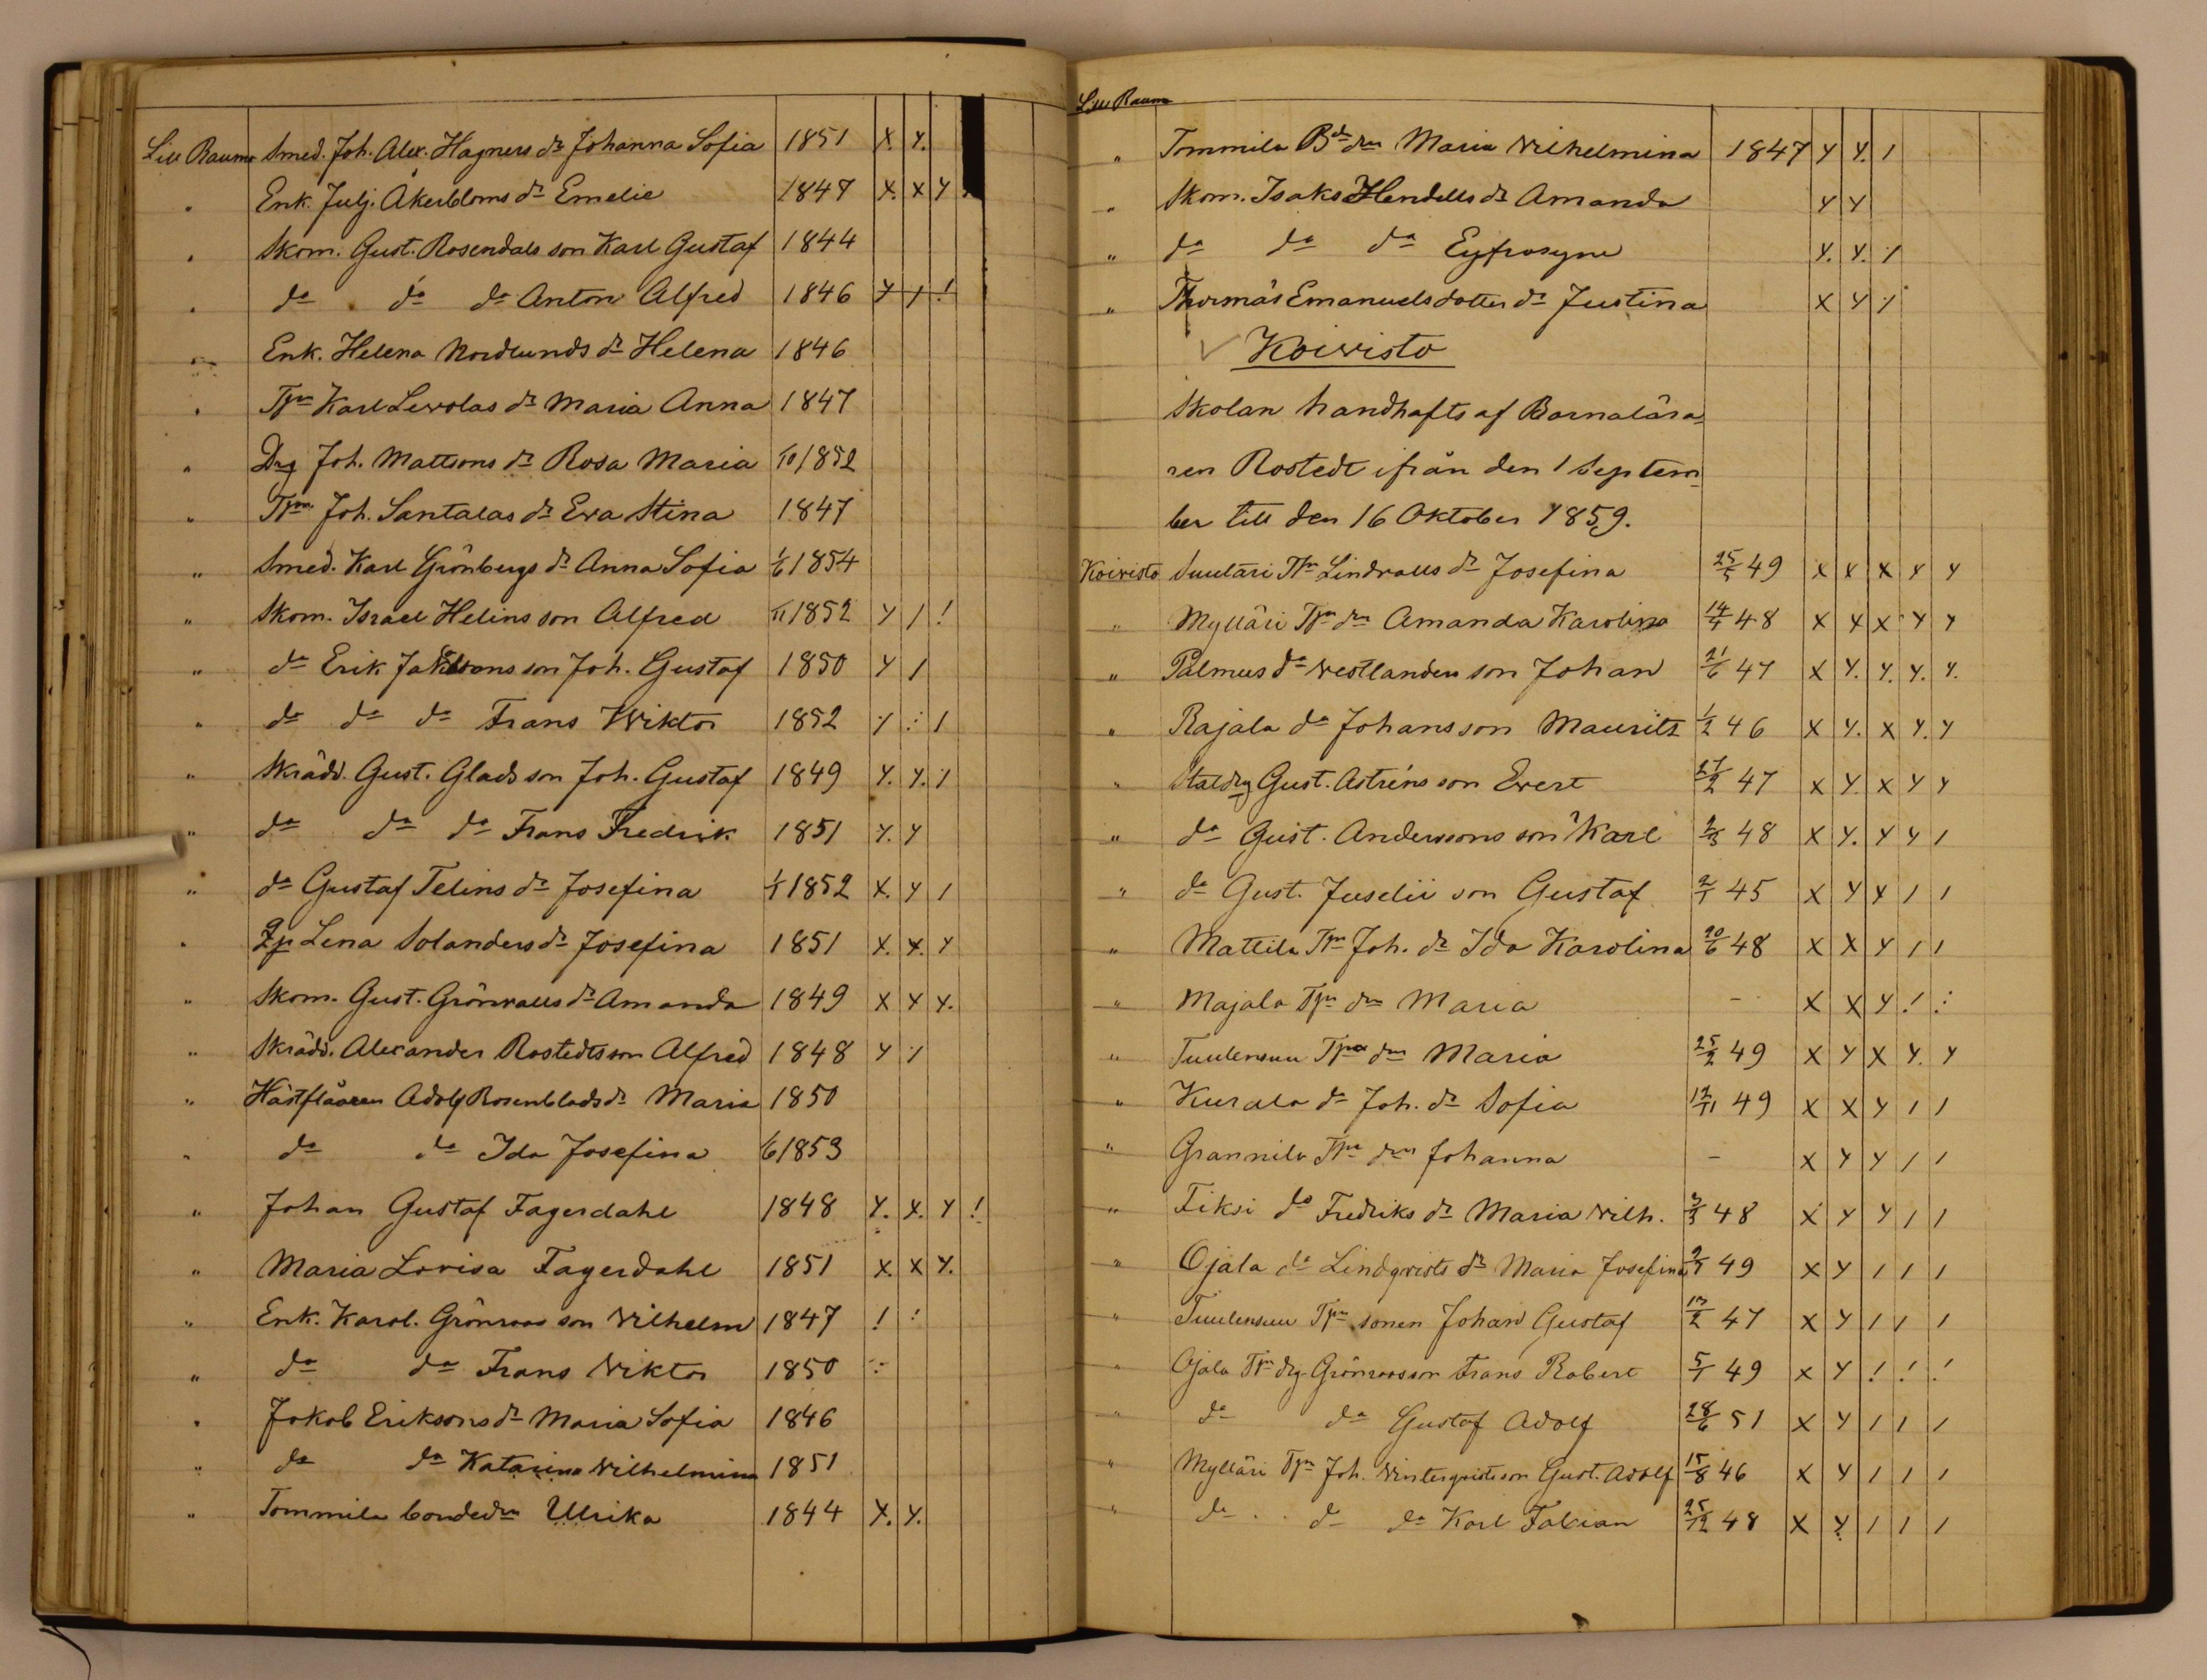 Lill Raumo Smed. Joh. Alex. Hagners dr Johanna Sofia 1851 X. Y.
" Enk. Julj. Åkerbloms dr Emelie 1847 X. X Y
" Skom. Gust. Rosendals son Karl Gustaf 1844
" do do do Anton Alfred 1846 Y / !
" Enk. Helena Nordlunds dr Helena 1846
" Tpr Karl Levolas dr Maria Anna 1847
" Drg Joh. Mattsons dr Rosa Maria /10 1852
" Tpr Joh. Santalas dr Eva Stina 1847
" Smed. Karl Grönbergs dr Anna Sofia 1/6 1854
" Skom. Israel Helins son Alfred /11 1852 Y / !
" do Erik Jakobsons son Joh. Gustaf 1850 Y /
" do do do Frans Wiktor 1852 ⁒ : /
" Skrädd. Gust. Glads son Joh. Gustaf 1849 Y. Y. ⁒
" do do do Frans Fredrik 1851 Y. Y
" do Gustaf Telins dr Josefina 1/1 1852 X. Y /
" Lena Solanders dr Josefina 1851 X. X. Y
" Skom. Gust. Grönvalls dr Amanda 1849 X X Y.
" Skrädd. Alexander Rostedts son Alfred 1848 Y ⁒
" Hästflåaren Adolf Rosenblads dr Maria 1850
" do do Ida Josefina /6 1853
" Johan Gustaf Fagerdahl 1848 Y. X. Y !
" Maria Lovisa Fagerdahl 1851 X. X Y.
" Enk. Karol. Grönroos son Vilhelm 1847 ! :
" do do Frans Viktor 1850 :
" Jakob Eriksons dr Maria Sofia 1846
" do do Katarina Vilhelmina 1851
" Tommila bondedrn Ulrika 1844 X. Y.
Lill Raumo
" Tommila Bde drn Maria Vilhelmina 1847 Y Y. /
" Skom. Isaks Hendells dr Amanda Y Y
" do do do Eyfrosyne Y. Y. ⁒
" Thomas Emanuelsdotter dr Justina X Y ⁒
Koivisto
Skolan handhafts af Barnalära-
ren Rostedt ifrån den 1 Septem-
ber till den 16 Oktober 1859.
Koivisto Suutari Tpr Lindvalls dr Josefina 25/5 49 X X X Y Y
" Mylläri Tpr drn Amanda Karolina 14/4 48 X X X Y Y
" Palmus do Westlanders son Johan 21/6 47 X Y. Y. Y. Y.
" Rajala do Johansson Maurits 1/2 46 X Y. X Y. Y
" Staldrg Gust. Astréns son Evert 27/2 47 X Y. X Y Y
" do Gust. Anderssons son Karl 2/3 48 X Y. Y Y /
" do Gust. Juselii son Gustaf 2/1 45 X Y X / /
" Mattila Tpr Joh. dr Ida Karolina 20/6 48 X X Y / /
" Majala Tpr drn Maria - X X Y ! :
" Tuulensuu Tpr drn Maria 25/2 49 X Y X Y. Y
" Kurala do Joh. dr Sofia 12/11 49 X X Y / /
" Grannila Tpr drn Johanna - X Y Y / /
" Fiksi do Fredriks dr Maria Vilh. 3/3 48 X Y Y / /
" Ojala do Lindqvists dr Maria Josefina 2/1 49 X Y / / /
" Tuulensuu Tpr sonen Johan Gustaf 13/2 47 X Y / / /
" Ojala Tpr drg Grönroos son Frans Robert 5/1 49 X Y ! ! !
" do do Gustaf Adolf 28/6 51 X Y / / /
" Mylläri Tpr Joh. Vinterqvists son Gust. Adolf 15/8 46 X Y / / /
" do do do Karl Fabian 25/12 48 X Y / / /